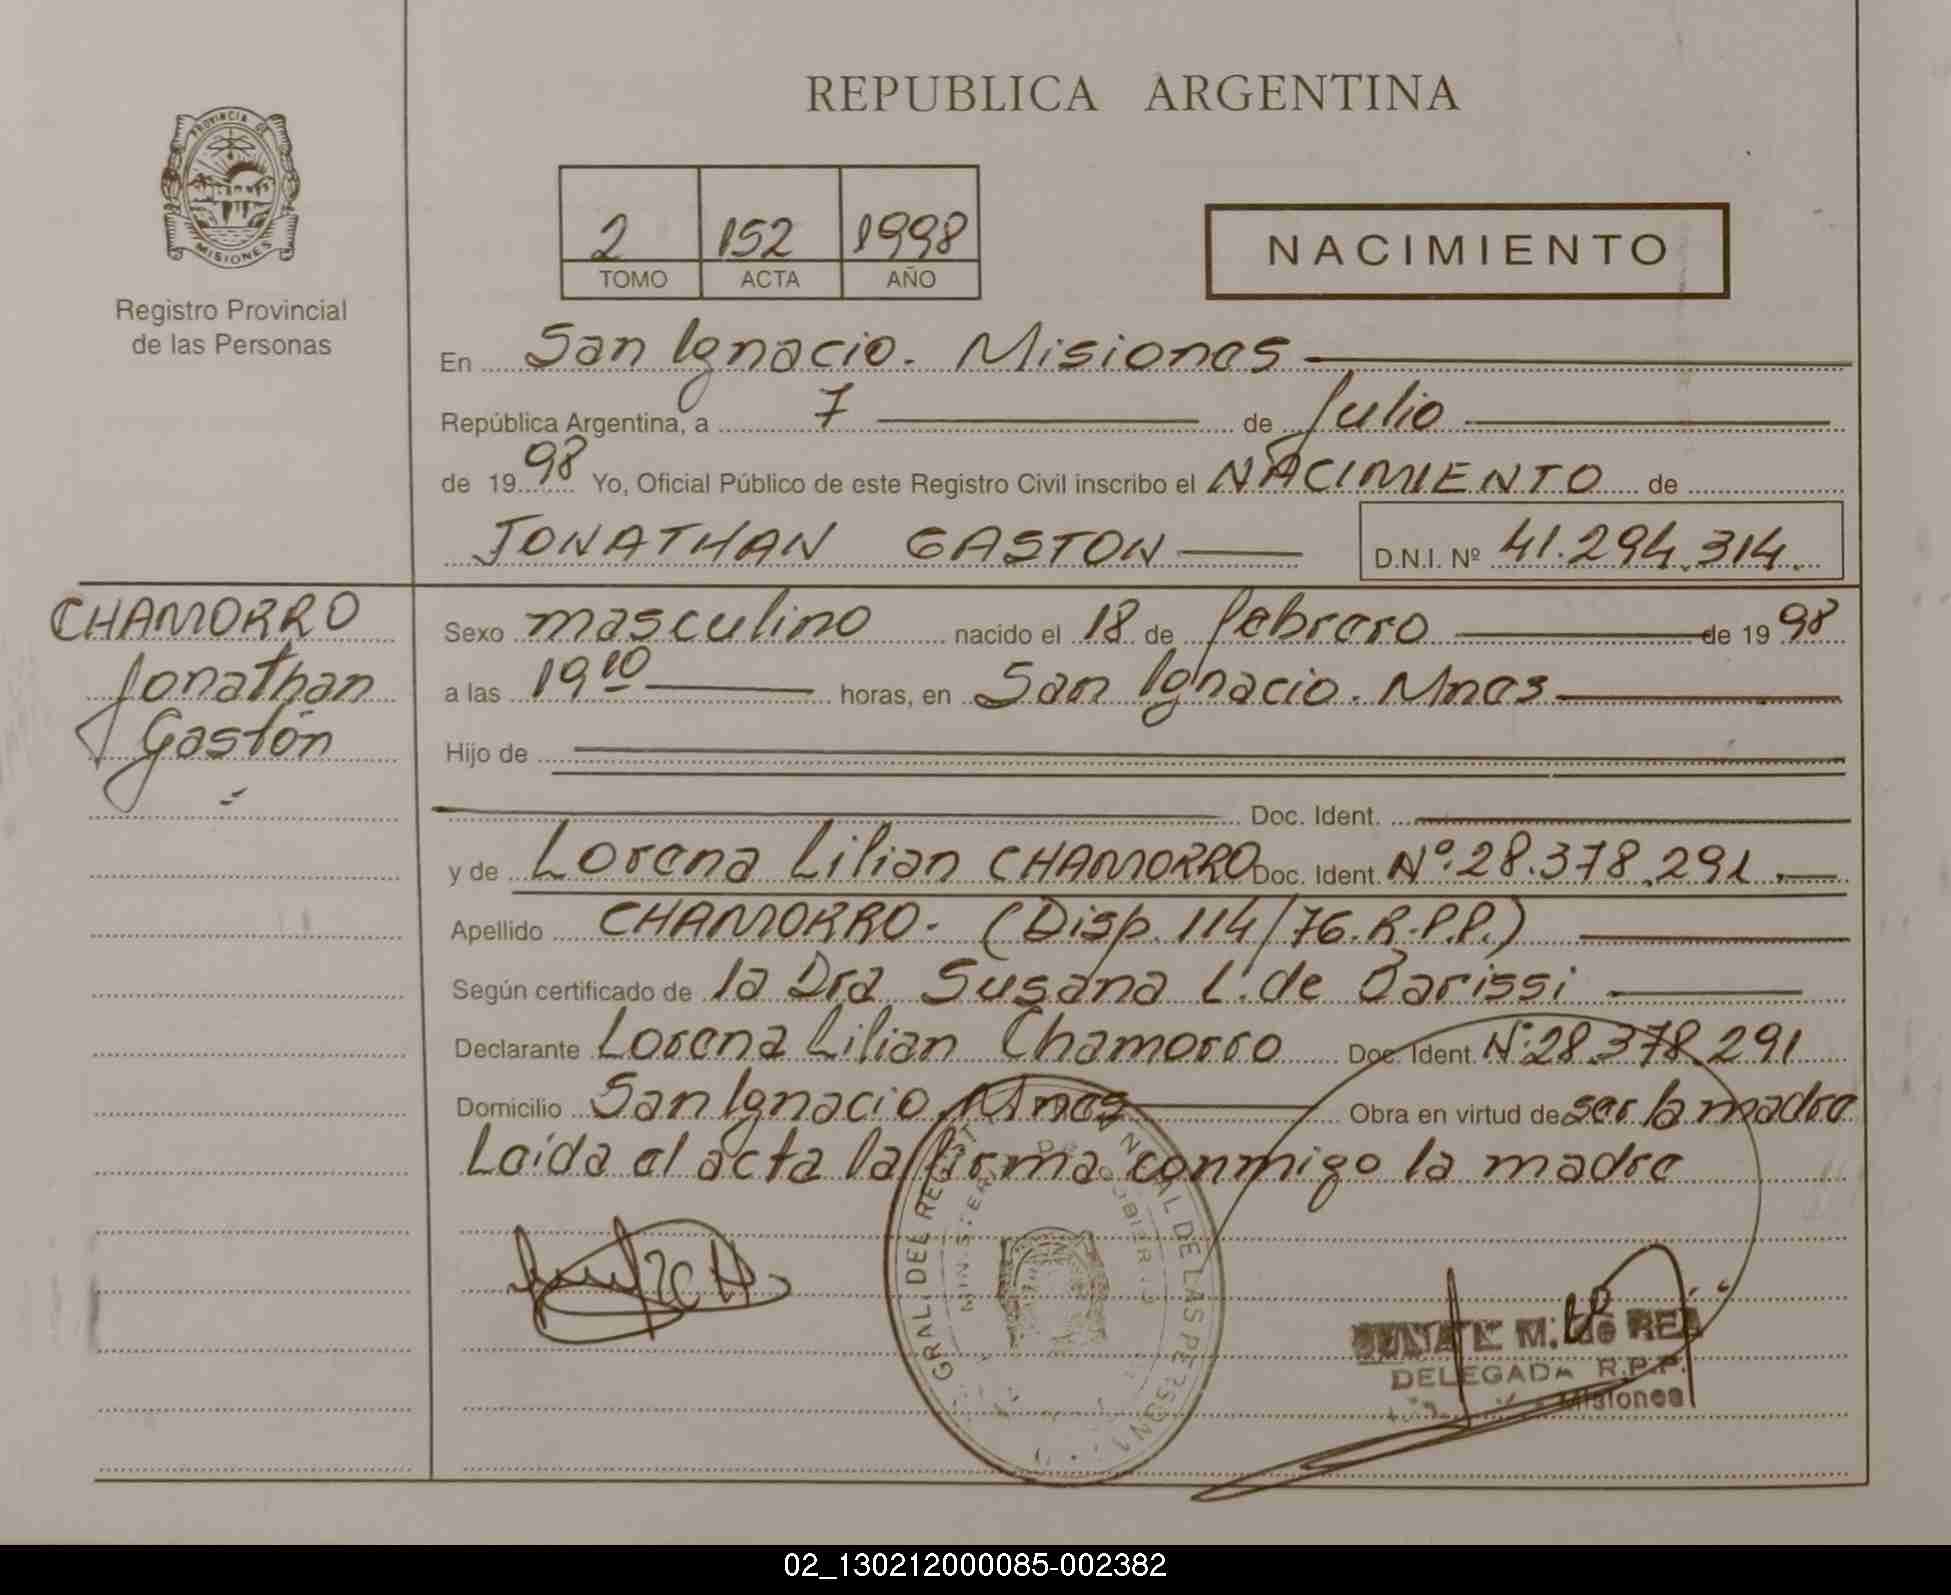 REPUBLICA ARGENTINA
PROVINCIA DE
MISIONES
Registro Provincial
de las Personas
2 152 1998
TOMO ACTA AÑO
NACIMIENTO
En San Ignacio. Misiones
República Argentina, a 7 de Julio
de 1998 Yo, Oficial Público de este Registro Civil inscribo el NACIMIENTO de
JONATHAN GASTON D.N.I. Nº 41.294.314.
CHAMORRO
Jonathan
Gastón
Sexo masculino nacido el 18 de febrero de 1998
a las 19 10 horas, en San Ignacio. Mnes
Hijo de
Doc. Ident.
y de Lorena Lilian CHAMORRO Doc. Ident. Nº:28.378.291.
Apellido CHAMORRO. (Disp. 114/76.R.P.P.)
Según certificado de la Dra Susana L. de Barissi
Declarante Lorena Lilian Chamorro Doc. Ident. Nº:28.378.291
Domicilio San Ignacio. Mnes Obra en virtud de ser la madre
Leída el acta la firma conmigo la madre
GRAL. DEL REGIST NAL DE LAS PERSONAS
MINISTERIO DE GOBIERNO
M. de REA
DELEGADA R.P.P.
Misiones
02_130212000085-002382